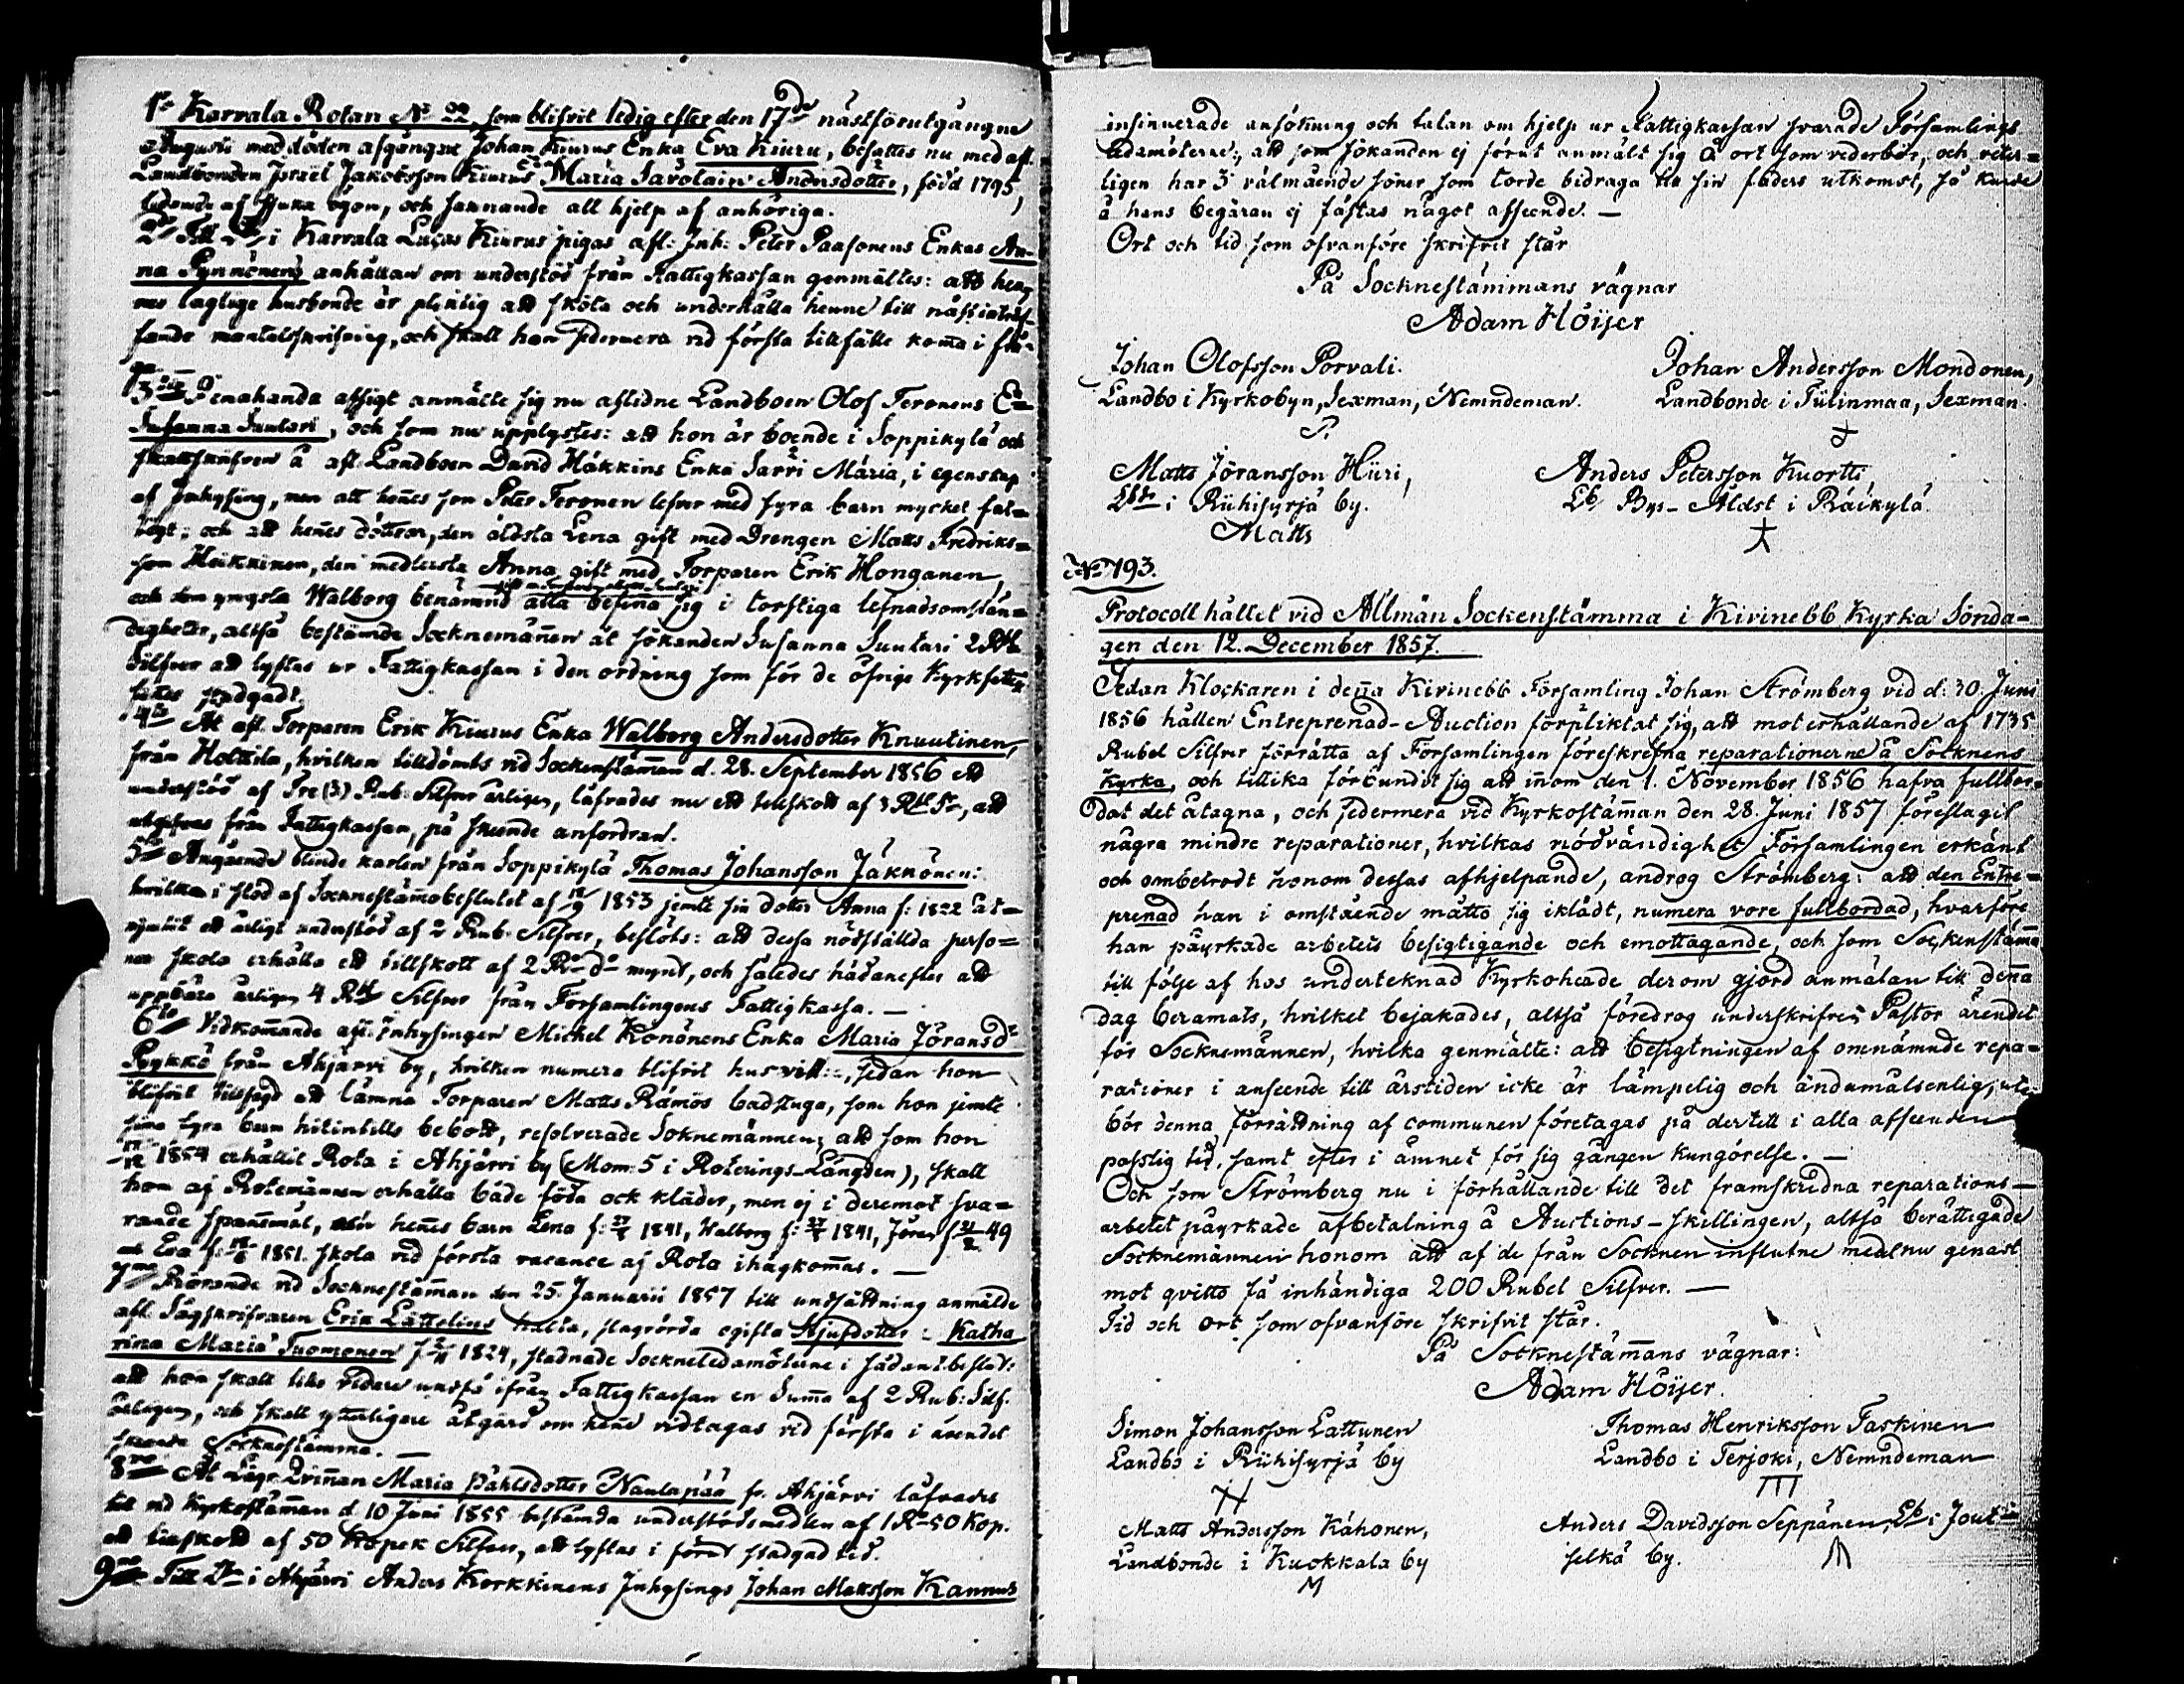 1o Karvala Rotan No 22, som blifvit ledig efter den 17de nästförutgångne
Augusti med döden afgångne Johan Kiurus Enka Eva Kiuru, besattes nu med afl.
Landbonden Israël Jakobsson Kiurus Ea Maria Savolain Andersdotter, född 1795,
lidande af sjuka ögon, och saknande all hjelp af anhöriga.
2do Till Lb i Karvala Lucas Kiurus pigas afl: Inh: Peter Paasonens Enkas An-
na Pynnönens anhållan om understöd från Fattigkassan genmältes: att hen-
nes laglige husbonde är pliktig att sköta och underhålla henne till nästinträf-
fande mantalsskrifning, och skall hon sedermera vid första tillfälle kom̅a i frå-
ga.
3tio I enahanda afsigt anmälte sig nu aflidne Landboen Olof Teronens Ea
Susanna Suutari, och som nu upplystes: att hon är boende i Soppikylä och
skattskrifven å afl. Landboen David Häkkins Enka Sarri Maria, i egenskap
af Inhysing, men att hen̅es son Peter Teronen lefver med fyra barn mycket fat-
tigt; och att hen̅es döttrar, den äldsta Lena gift med Drengen Matts Fredriks-
son Heikkinen, den medlersta Anna gift med Torparen Erik Honganen,
och den yngsta Walborg benämnd alla befin̅a sig i torftiga lefnadsomstän-
digheter, altså bestämde Socknemän̅en åt sökanden Susanna Suutari 2 Rbl
Silfver att lyftas ur Fattigkassan i den ordning som för de öfriga Kyrkfattig
hittes stadgadt.
4to At afl. Torparen Erik Kiurus Enka Walborg Andersdotter Knuutinen,
från Holttila, hvilken tilldömts vid Sockenstäm̅an d. 28. September 1856 ett
understöd af Tre (3) Rub: Silfver årligen, lofvades nu ett tillskott af 3 Rbl Sr, att
utgifvas från Fattigkassan, på skeende anfordran.
5to Angående blinde karlen från Soppikylä Thomas Johansson Jäkkönen:
hvilken i stöd af Socknestäm̅obeslutet af 1853 jemte sin dotter Anna f: 1822 åt-
njutit ett årligt understöd af 2 Rub. Silfver, beslöts: att dessa nödställda perso-
ner skola erhålla ett tillskott af 2 Ro do mynt, och således hädanefter att
uppbära årligen 4 Rbl Silfver från Församlingens Fattigkassa. —
6to Vidkom̅ande afl. Inhysingen Michel Konönens Enka Maria Jöransdr
Pykkö från Ahjärvi by, hvilken numera blifvit husvill:, sedan hon
blifvit tillsagd att lämna Torparen Matts Rämös badstuga, som hon jemte
sina fyra barn hitintills bebott, resolverade Soknemännen; att som hon
1854 erhållit Rota i Ahjärvi by (Mom: 5 i Roterings-Längden), skall
hon af Rotemännen erhålla både föda ock kläder, men ej i deremot sva-
rande span̅emål, hen̅es barn Lena f: 1841, Walborg f: 1841, Jöran f 49
och Eva f: 1851. skola vid första vacance af Rota ihågkom̅as. —
7mo Rörande vid Socknestäm̅an den 25. Januarii 1857 till undsättning anmälde
afl. Sågskrifvaren Erik Lättelins halta, slagrörda ogifta styfdotter: Katha
rina Maria Tuomonen f 1824, stadnade Socknéledamöterne i sådant beslut:
att hon skall tills vidare undfå ifrån Fattigkassan en Sum̅a af 2 Rub: Silf.
årligen, och skall ytterligare åtgärd om hen̅e vidtagas vid första i ärendet
skeende Socknestämma. —
8vo At Lägr.Qvin̅an Maria Påhlsdotter Naulapää fr. Ahjärvi lofvades
till vid Kyrkostäm̅an d 10 Juni 1855 bestämda understödsmedlen af 1 Ro 50 Kop.
ett tillskott af 50 Kopek Silfver, att lyftas i förut stadgad tid.
9no Till Lb i Ahjärvi Anders Korkkinens Inhysings Johan Mattsson Kannus
insinuerade ansökning och talan om hjelp ur Fattigkassan svarade Församlings
ledamöterne; att som sökanden ej förut anmält sig å ort som vederbör, och veter-
ligen har 3 välmående söner som torde bidraga till sin faders utkomst, så kunde
å hans begäran ej fästas något afseende. —
Ort och tid som ofvanföre skrifvit står
På Socknestämmans vägnar
Adam Höijer
Johan Olofsson Porvali. Johan Andersson Mondonen,
Landbo i Kyrkobyn, Sexman, Nemndeman. Landbonde i Tülinmaa, Sexman.
Matts Jöransson Hüri, Anders Petersson Kuortti,
Lbde i Rühisyrjä by. Lb Bys-Äldst i Räikylä
Matts
No 193.
Protocoll hållet vid Allmän Sockenstämma i Kivinebb Kyrka Sönda-
gen den 12. December 1857.
Sedan Klockaren i den̅a Kivinebb Församling Johan Strömberg vid d: 30. Juni
1856 hållen Entreprenad-Auction förpliktat sig, att mot erhållande af 1735
Rubel Silfver förrätta af Församlingen föreskrefna reparationerne å Socknens
Kyrka, och tillika förbundit sig att in̅om den 1. November 1856 hafva fullbor-
dat det åtagna, och sedermera vid Kyrkostäm̅an den 28. Juni 1857 föreslagit
några mindre reparationer, hvilkas nödvändighet Församlingen erkänt
och ombetrodt honom dessas afhjelpande, androg Strömberg: att den Entre-
prenad han i omstående måtto sig iklädt, numera vore fullbordad, hvarföre
han påyrkade arbetets besigtigande och emottagande, och som Sockenstäm̅a
till följe af hos undertecknad Kyrkoherde derom gjord anmälan till den̅a
dag beramats, hvilket bejakades, altså föredrog underskrifven Pastor ärendet
för Socknemännen, hvilka genmälte: att besigtningen af omnämnde repa-
rationer i anseende till årstiden icke är lämpelig och ändamålsenlig, utan
bör denna förrättning af communen företagas på dertill i alla afseenden
passlig tid, samt efter i ämnet för sig gången kungörelse. —
Och som Strömberg nu i förhållande till det framskredna reparations-
arbetet påyrkade afbetalning å Auctions-skillingen, altså berättigade
Socknemännen honom att af de från Socknen influtne medel nu genast
mot qvitto få inhändiga 200 Rubel Silfver. —
Tid och ort som ofvanföre skrifvit står.
På Socknestäm̅ans vägnar:
Adam Höijer.
Simon Johansson Lattunen Thomas Henriksson Taskinen
Landbo i Rühisyrjä by Landbo i Terjoki, Nemndeman
Matts Andersson Kähonen, Anders Davidsson Seppänen, Lb i Jout
Landbonde i Kuokkala by selkä by.